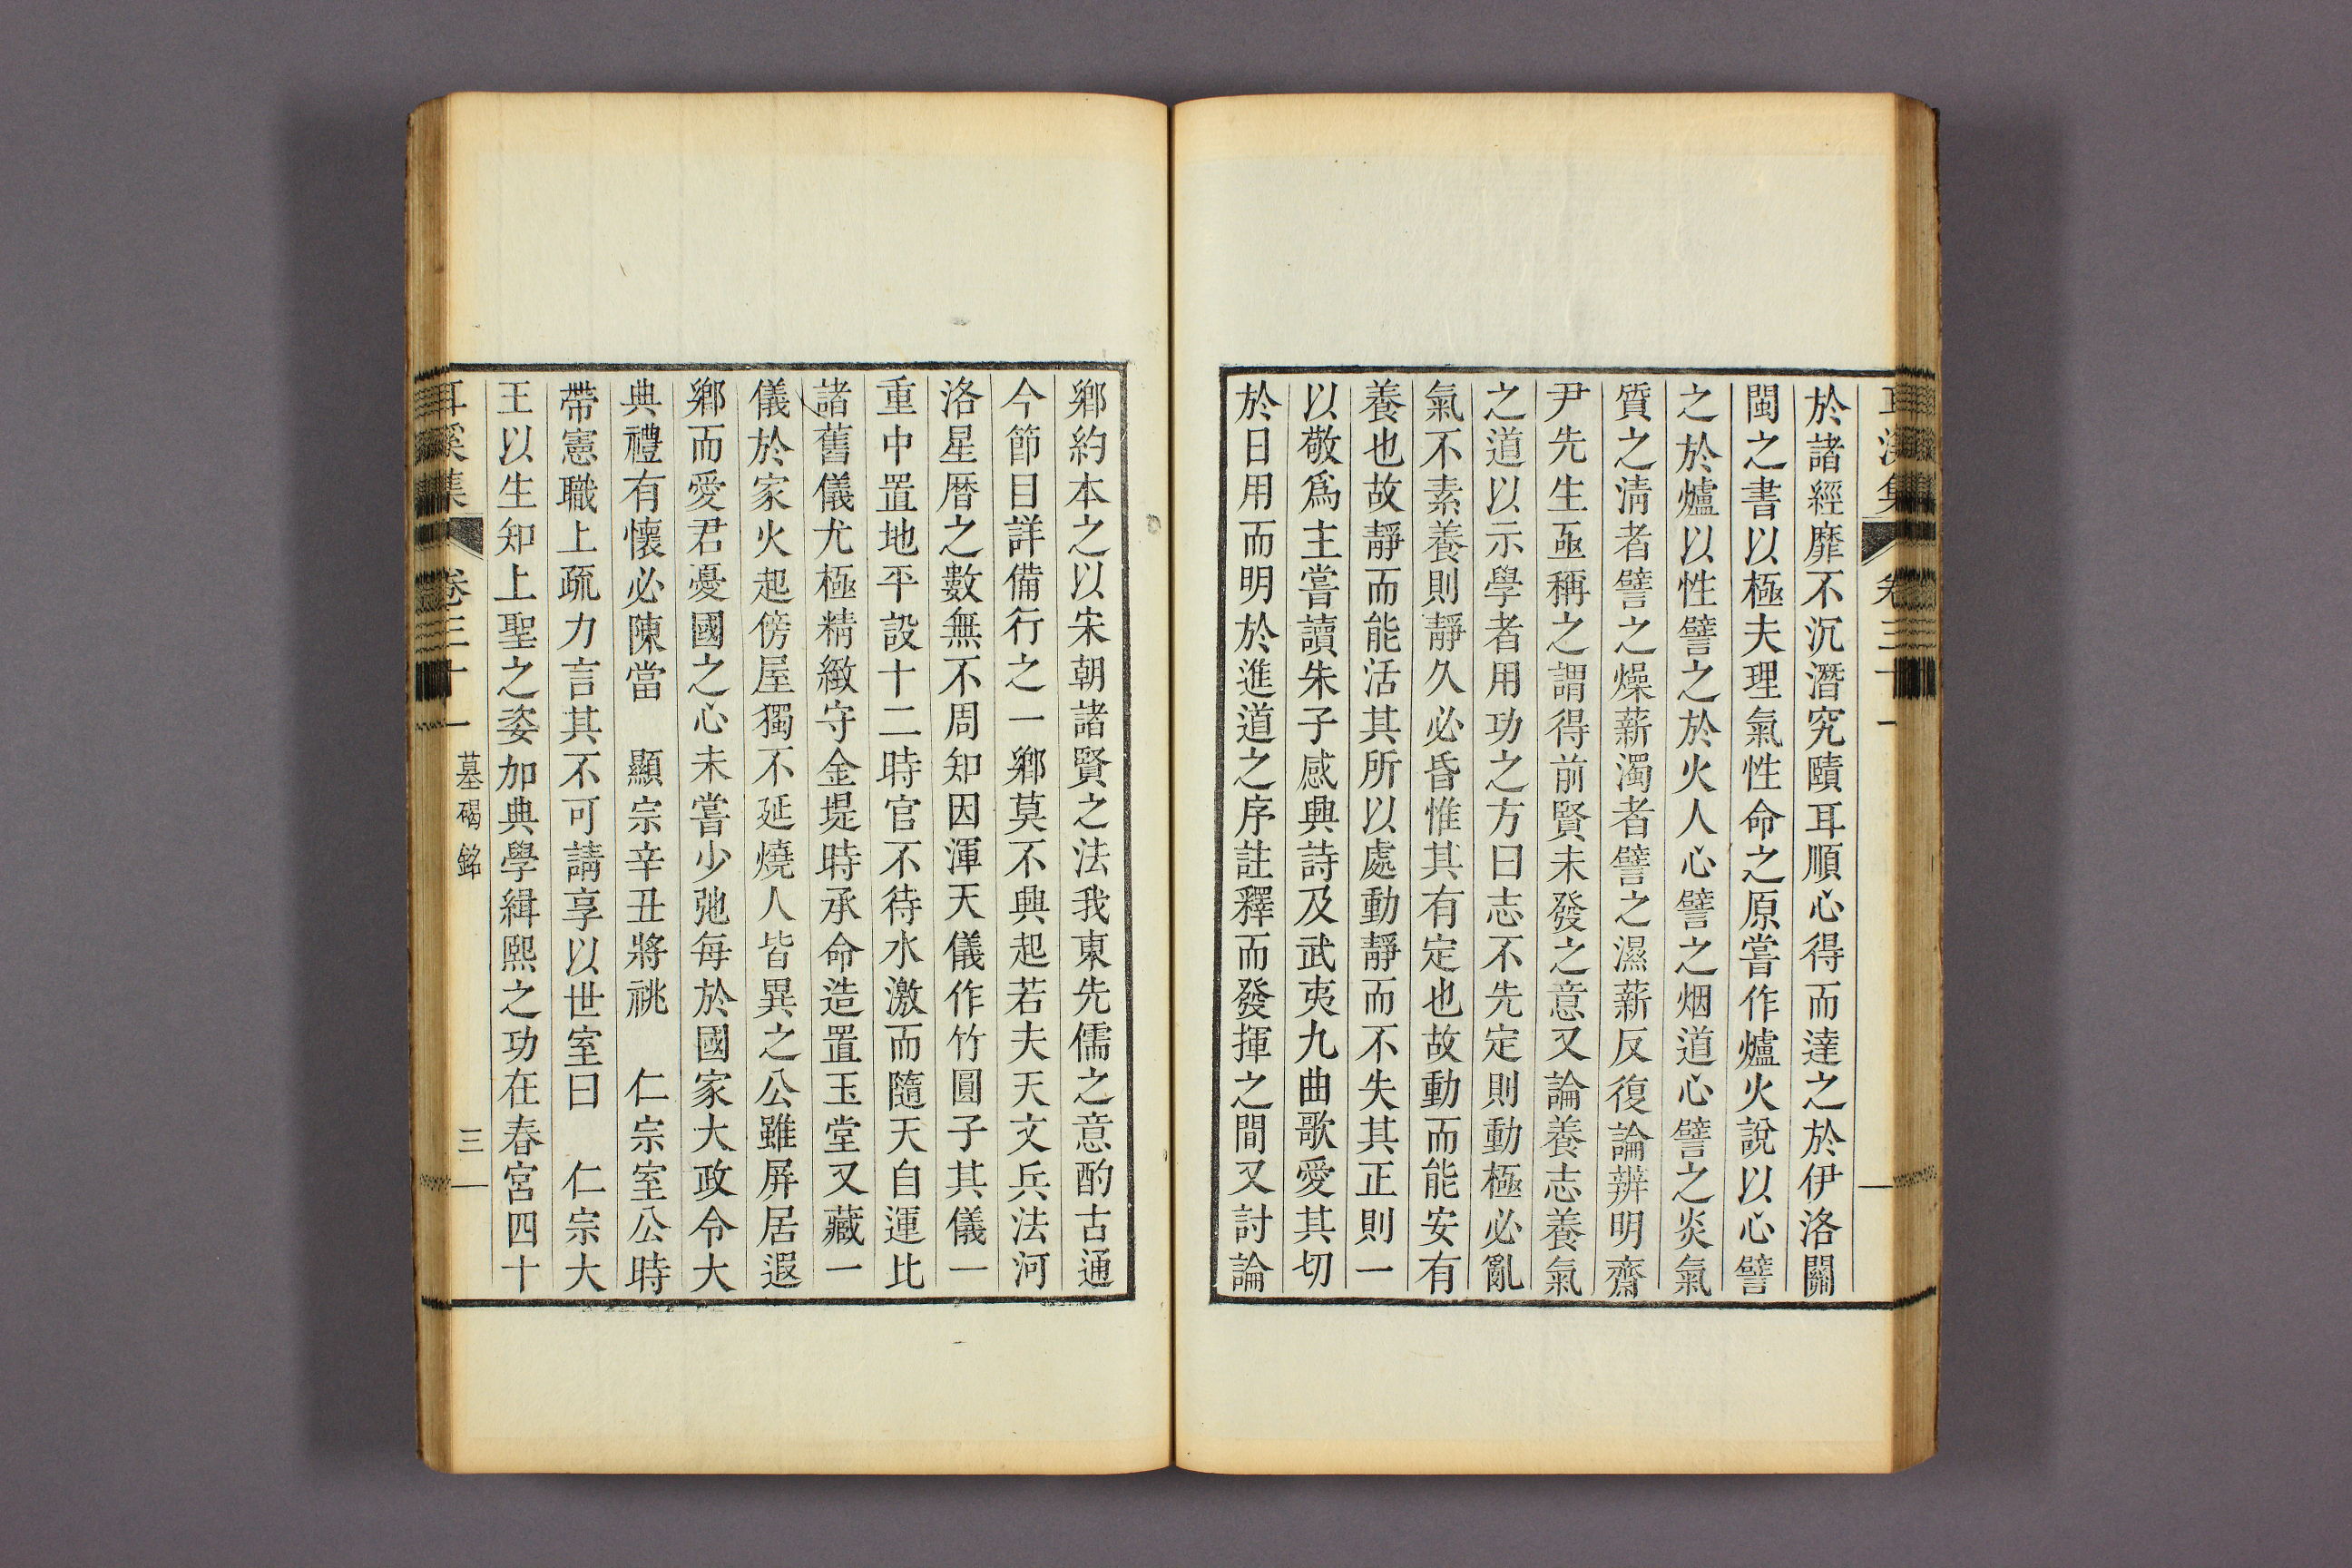 於諸經靡不沉潛究賾耳順心得而達之於伊洛關
閩之書以極夫理氣性命之原嘗作爐火說以心譬
之於爐以性譬之於火人心譬之烟道心譬之炎氣
質之淸者譬之燥薪濁者譬之濕薪反復論辨明齋
尹先生亟稱之謂得前賢未發之意又論養志養氣
之道以示學者用功之方曰志不先定則動極必亂
氣不素養則靜久必昏惟其有定也故動而能安有
養也故靜而能活其所以處動靜而不失其正則一
以敬爲主嘗讀朱子感興詩及武夷九曲歌愛其切
於日用而明於進道之序註釋而發揮之間又討論
鄕約本之以宋朝諸賢之法我東先儒之意酌古通
今節目詳備行之一鄕莫不興起若夫天文兵法河
洛星曆之數無不周知因渾天儀作竹圓子其儀一
重中置地平設十二時官不待水激而隨天自運比
諸舊儀尤極精緻守金堤時承命造置玉堂又藏一
儀於家火起傍屋獨不延燒人皆異之公雖屛居遐
鄕而愛君憂國之心未嘗少弛每於國家大政令大
典禮有懷必陳當 顯宗辛丑將祧 仁宗室公時
帶憲職上疏力言其不可請享以世室曰 仁宗大
王以生知上聖之姿加典學緝熙之功在春宮四十
耳溪集 卷三十 墓碣銘 三